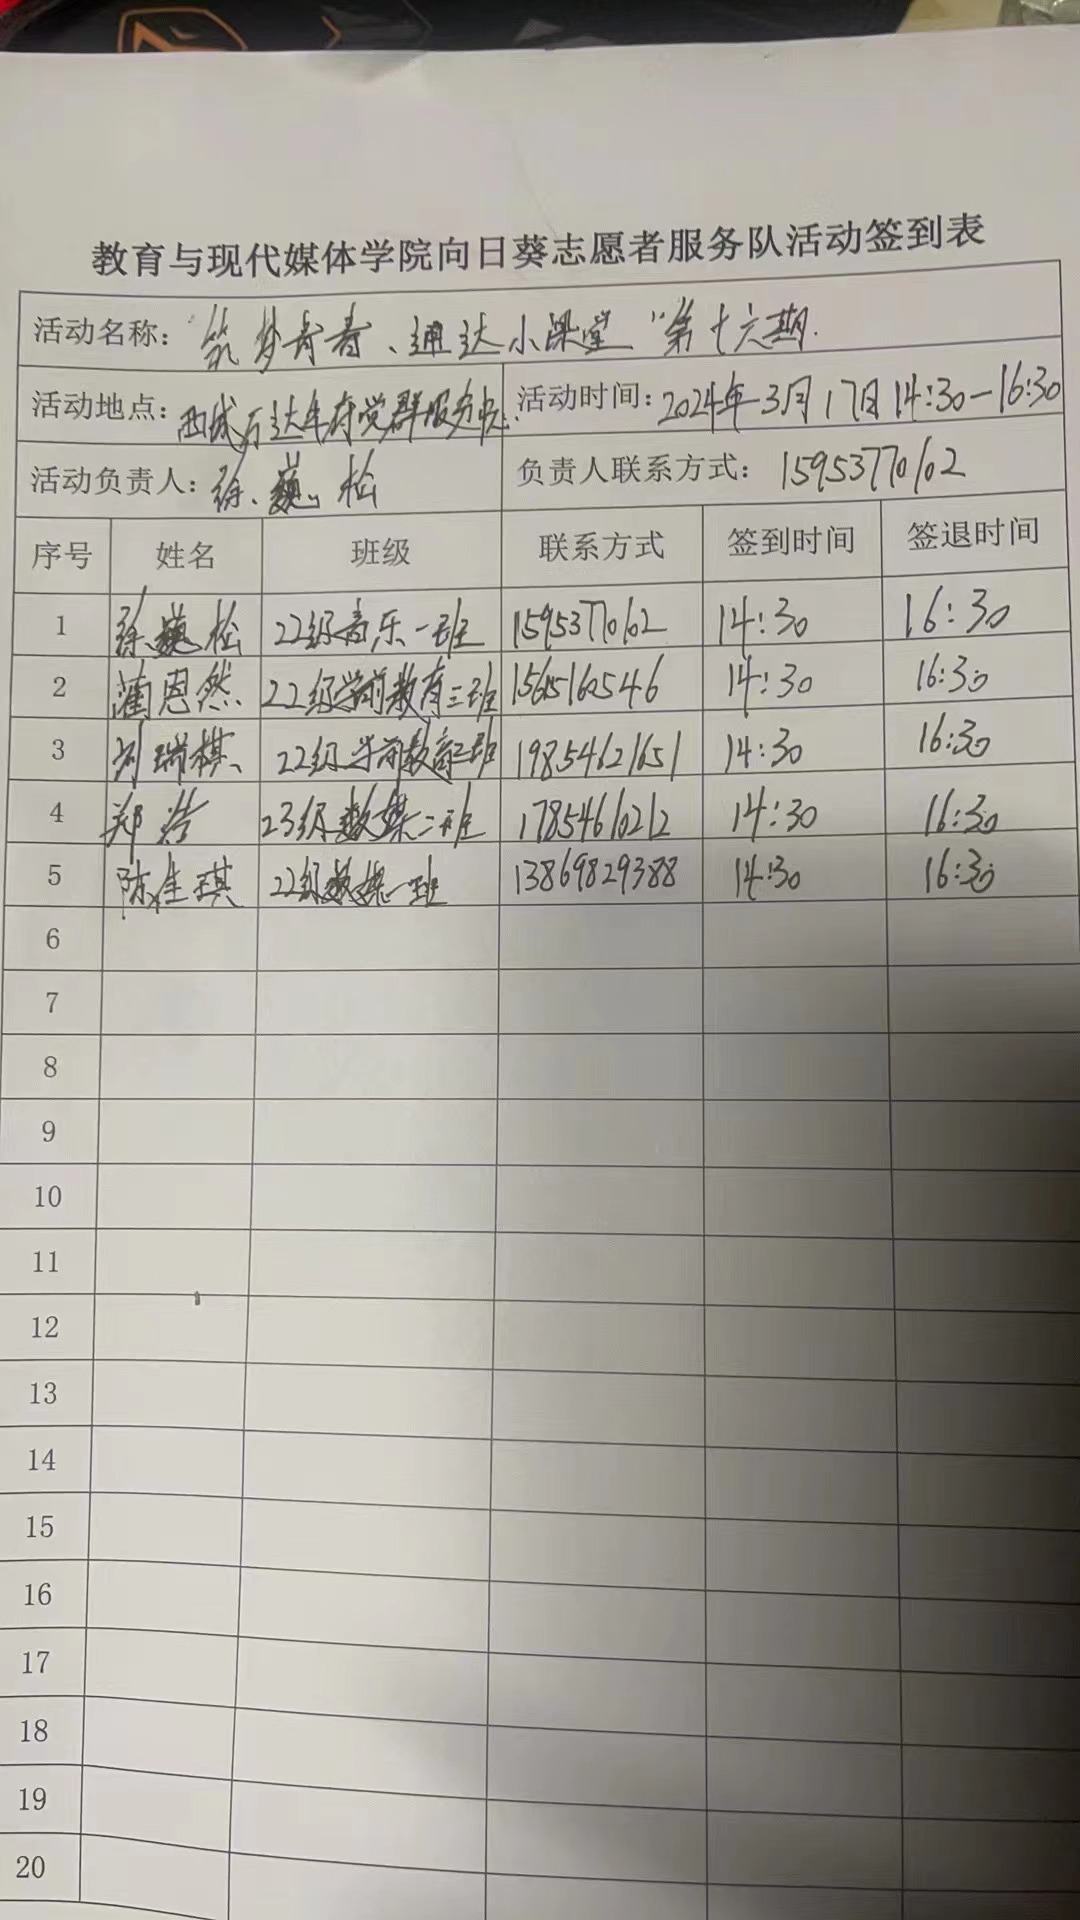 教育与现代媒体学院向日葵志愿者服务队活动签到表
活动名称： "筑梦青春、通达小课堂"第十六期.
活动地点： 西城万达年府党群服务中心 活动时间： 2024年3月17日 14:30-16:30
活动负责人： 徐巍松 负责人联系方式： 15953770102
序号 姓名 班级 联系方式 签到时间 签退时间
1 徐巍松 22级音乐一班 15953770102 14:30 16:30
2 蔺恩然 22级学前教育三班 14:30 16:30
3 刘瑞棋 22级学前教育三班 19854621651 14:30 16:30
4 郑浩 23级数媒二班 17854610212 14:30 16:30
5 陈佳琪 22级数媒一班 13869829388 14:30 16:30
6
7
8
9
10
11
12
13
14
15
16
17
18
19
20